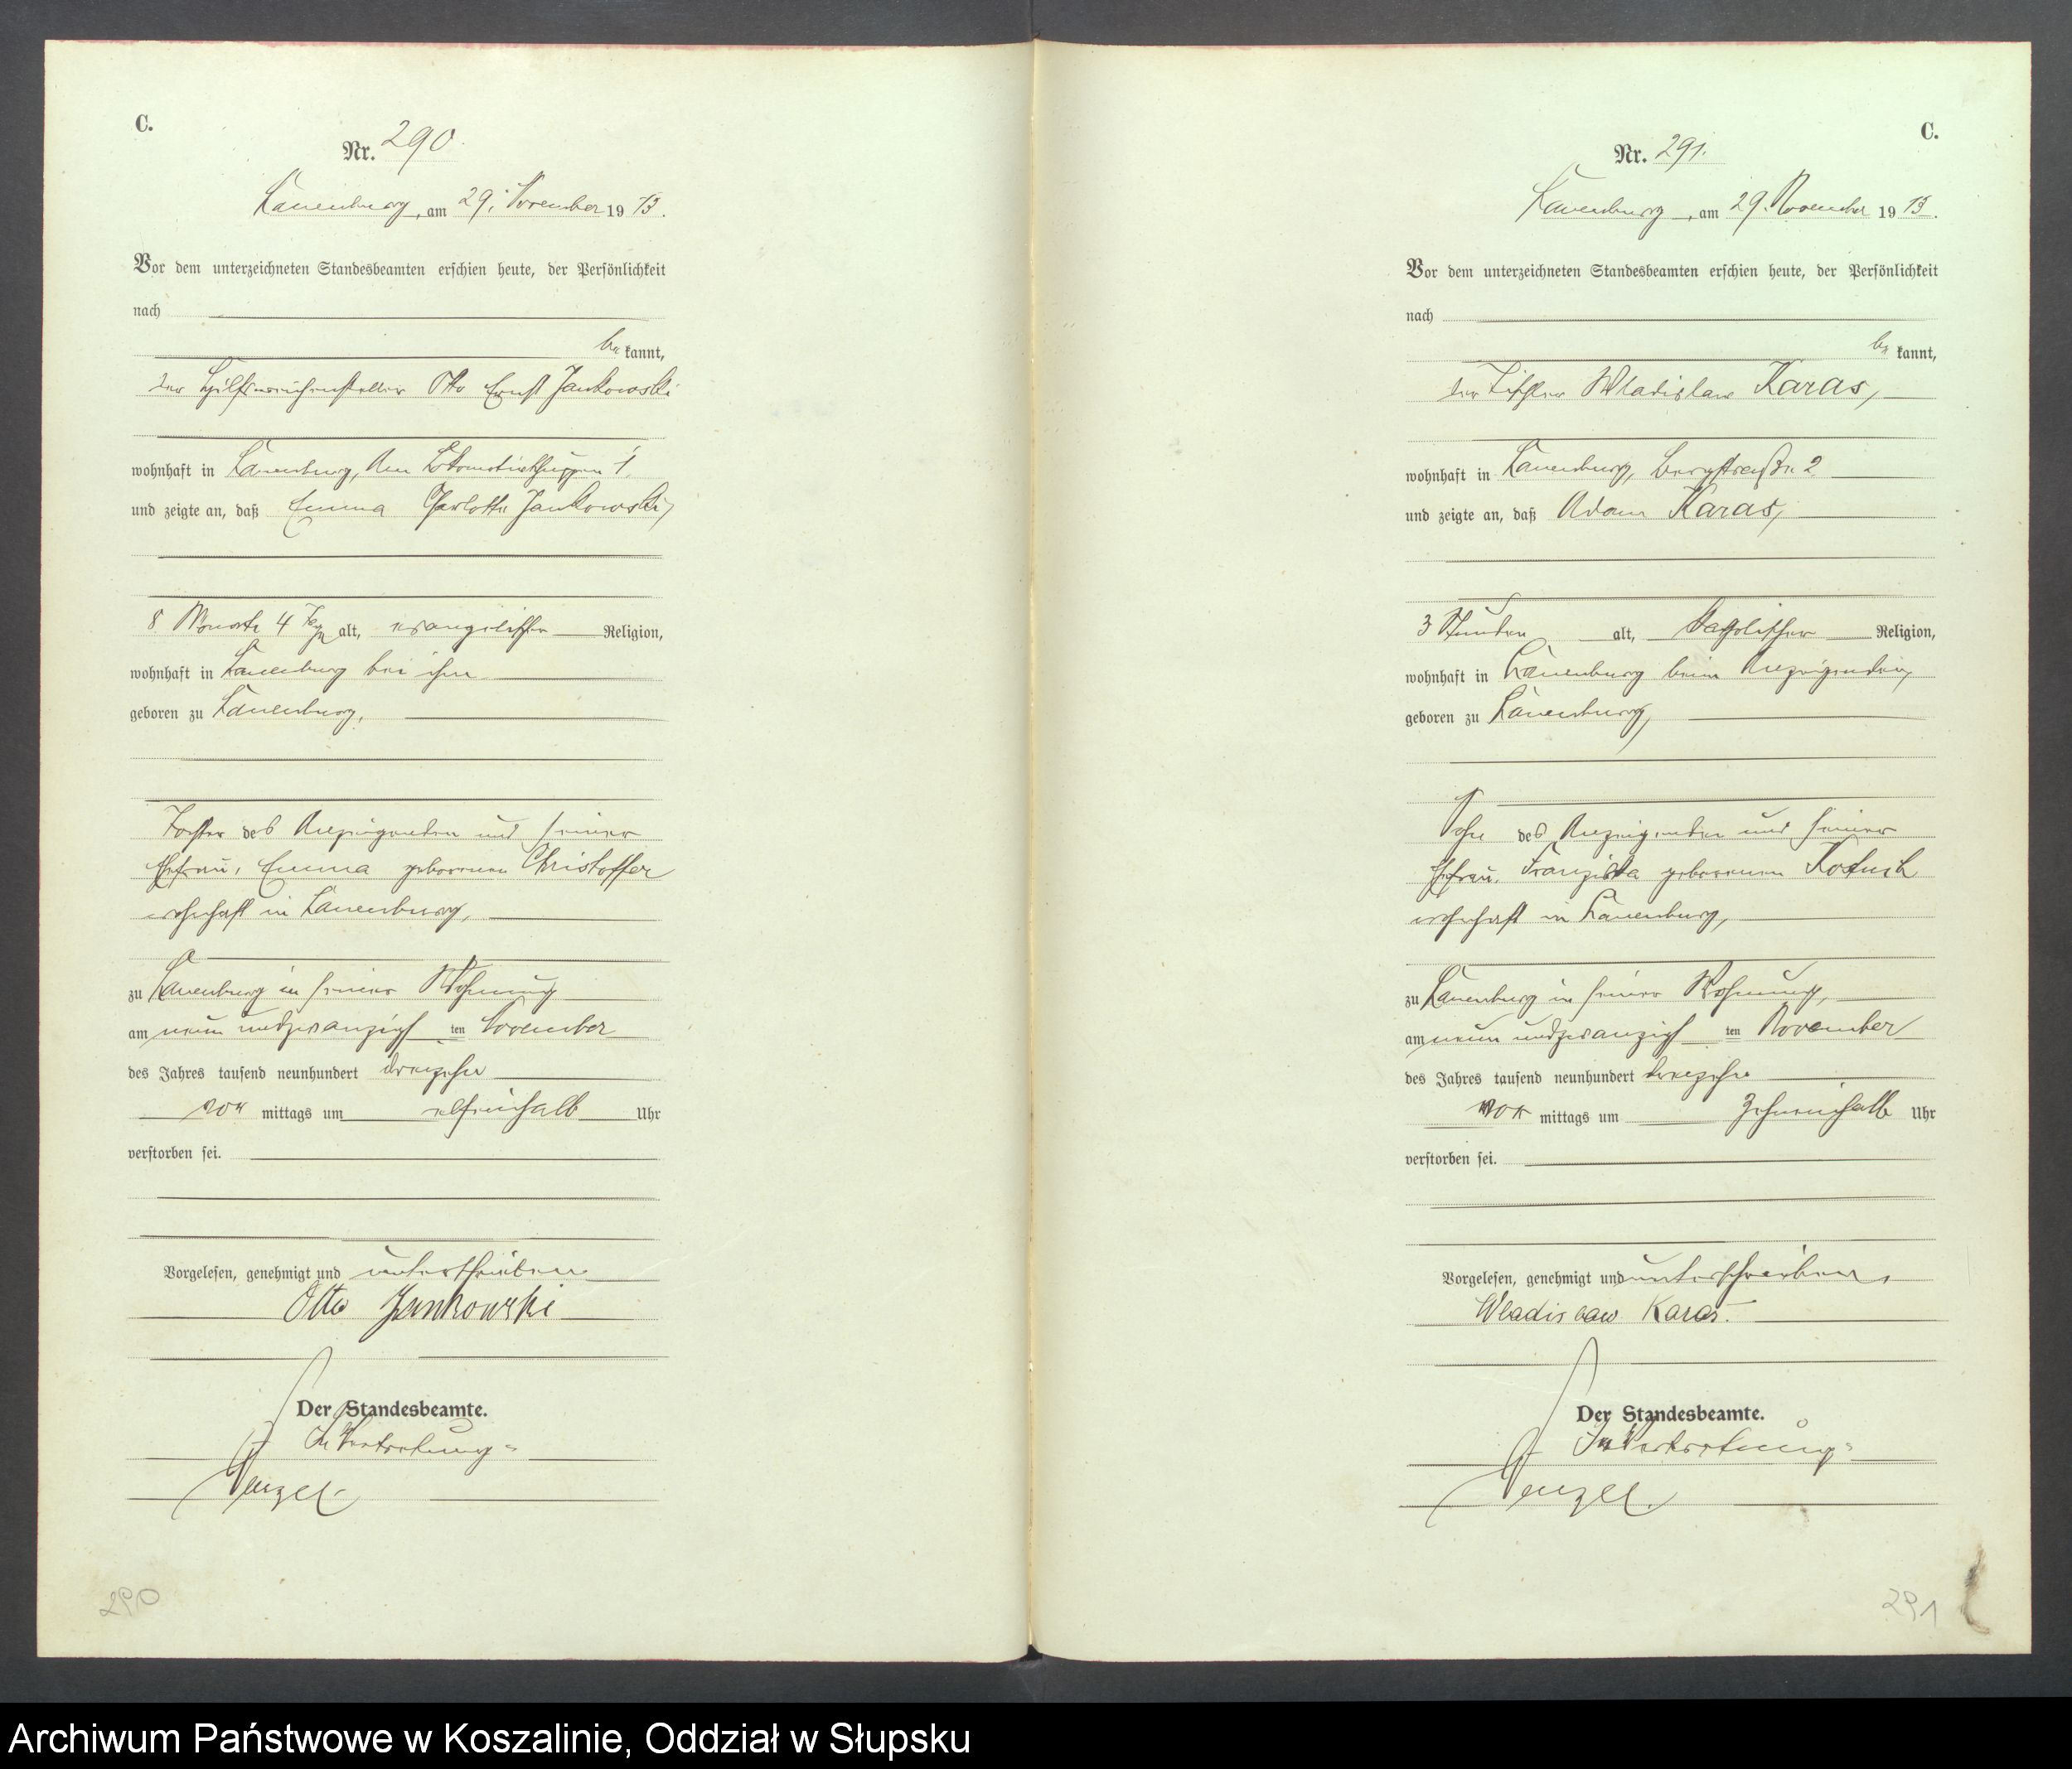 C.
Nr. 290.
Lauenburg, am 29. November 1913.
Vor dem unterzeichneten Standesbeamten erschien heute, der Persönlichkeit
nach
be kannt,
der Hilfsweichensteller Otto Ernst Jankowski
wohnhaft in Lauenburg, Am Lokomotivschuppen 1,
und zeigte an, daß Emma Charlotte Jankowski,
8 Monate 4 Tage alt, evangelischer Religion,
wohnhaft in Lauenburg bei ihm
geboren zu Lauenburg,
Tochter des Anzeigenden und seiner
Ehefrau, Emma geborenen Christoffer
wohnhaft in Lauenburg,
zu Lauenburg in seiner Wohnung
am neun und zwanzigsten November
des Jahres tausend neunhundert dreizehn
vor mittags um elfeinhalb Uhr
verstorben sei.
Vorgelesen, genehmigt und unterschrieben
Otto Jankowski
Der Standesbeamte.
In Vertretung
290
C.
Nr. 291.
Lauenburg, am 29. November 1913.
Vor dem unterzeichneten Standesbeamten erschien heute, der Persönlichkeit
nach
be kannt,
der Tischler Wladislaw Karas,
wohnhaft in Lauenburg, Bergstraße 2
und zeigte an, daß Adam Karas,
3 Stunden alt, katholischer Religion,
wohnhaft in Lauenburg beim Anzeigenden,
geboren zu Lauenburg,
Sohn des Anzeigenden und seiner
Ehefrau, Franziska geborenen
wohnhaft in Lauenburg,
zu Lauenburg in seiner Wohnung,
am neun und zwanzigsten November
des Jahres tausend neunhundert dreizehn
vor mittags um zehneinhalb Uhr
verstorben sei.
Vorgelesen, genehmigt und unterschrieben,
Wladislaw Karas.
Der Standesbeamte.
In Vertretung
291
Archiwum Państwowe w Koszalinie, Oddział w Słupsku